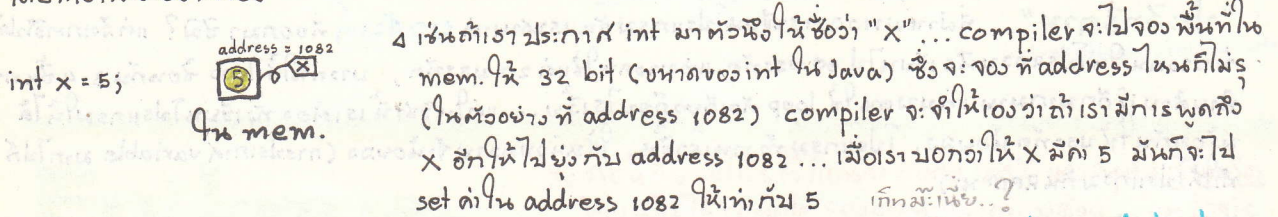 address = 1082
int x = 5;
5
x
ใน mem.
เช่นถ้าเราประกาศ int มาตัวนึงให้ชื่อว่า "x" ... compiler จะไปจองพื้นที่ใน
mem. ให้ 32 bit (ขนาดของ int ใน Java) ซึ่งจะจองที่ address ไหนก็ไม่รู้
(ในตัวอย่าง ที่ address 1082) compiler จะจำให้เองว่าถ้าเรามีการพูดถึง
x อีกให้ไปยุ่งกับ address 1082 ... เมื่อเราบอกว่าให้ x มีค่า 5 มันก็จะไป
set ค่าใน address 1082 ให้เท่ากับ 5